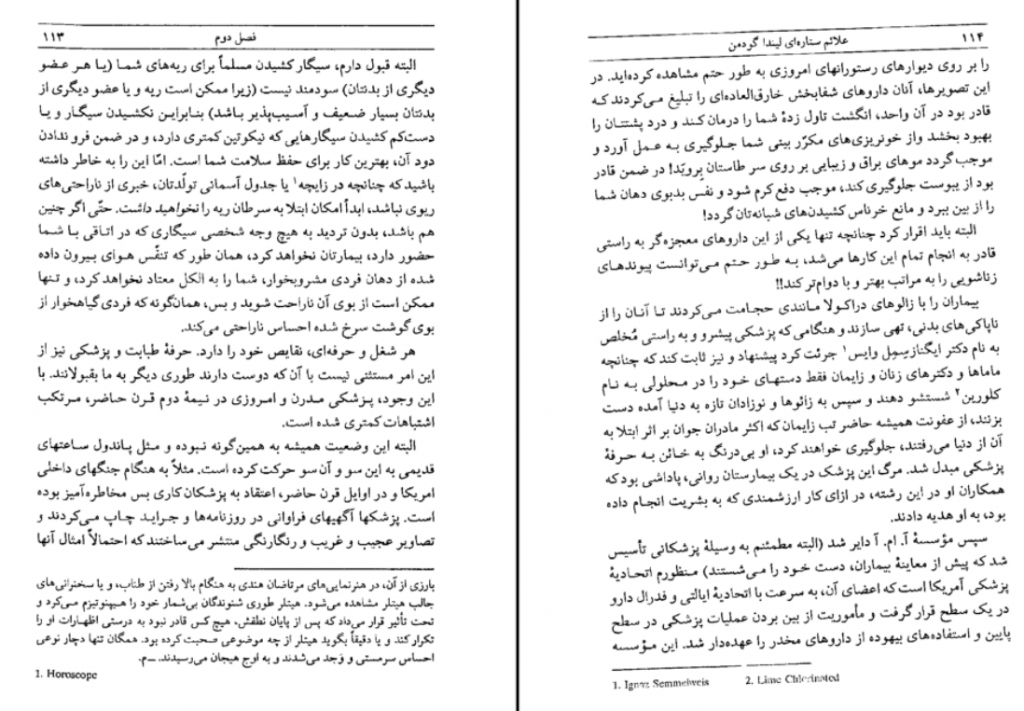 فصل دوم ۱۱۳
البته قبول دارم، سیگار کشیدن مسلماً برای ریه‌های شما (یا هر عضو
دیگری از بدنتان) سودمند نیست (زیرا ممکن است ریه و یا عضو دیگری از
بدنتان بسیار ضعیف و آسیب‌پذیر باشد) بنابراین نکشیدن سیگار و یا
دست‌کم کشیدن سیگارهایی که نیکوتین کمتری دارد، و در ضمن فرو ندادن
دود آن، بهترین کار برای حفظ سلامت شما است. امّا این را به خاطر داشته
باشید که چنانچه در زایچه۱ یا جدول آسمانی تولّدتان، خبری از ناراحتی‌های
ریوی نباشد، ابداً امکان ابتلا به سرطان ریه را نخواهید داشت. حتّی اگر چنین
هم باشد، بدون تردید به هیچ وجه شخصی سیگاری که در اتاقی با شما
حضور دارد، بیمارتان نخواهد کرد، همان طور که تنفّس هوای بیرون داده
شده از دهان فردی مشروبخوار، شما را به الکل معتاد نخواهد کرد، و تنها
ممکن است از بوی آن ناراحت شوید و بس، همان‌گونه که فردی گیاهخوار از
بوی گوشت سرخ شده احساس ناراحتی می‌کند.
هر شغل و حرفه‌ای، نقایص خود را دارد. حرفهٔ طبابت و پزشکی نیز از
این امر مستثنی نیست با آن که دوست دارند طوری دیگر به ما بقبولانند. با
این وجود، پزشکی مدرن و امروزی در نیمهٔ دوم قرن حاضر، مرتکب
اشتباهات کمتری شده است.
البته این وضعیت همیشه به همین‌گونه نبوده و مثل پاندول ساعتهای
قدیمی به این سو و آن سو حرکت کرده است. مثلاً به هنگام جنگهای داخلی
امریکا و در اوایل قرن حاضر، اعتقاد به پزشکان کاری بس مخاطره‌آمیز بوده
است. پزشکها آگهیهای فراوانی در روزنامه‌ها و جراید چاپ می‌کردند و
تصاویر عجیب و غریب و رنگارنگی منتشر می‌ساختند که احتمالاً امثال آنها
بارزی از آن، در هنرنمایی‌های مرتاضان هندی به هنگام بالا رفتن از طناب، و یا سخنرانی‌های
جالب هیتلر مشاهده می‌شود. هیتلر طوری شنوندگان بی‌شمار خود را هیپنوتیزم می‌کرد و
تحت تأثیر قرار می‌داد که پس از پایان نطقش، هیچ کس قادر نبود به درستی اظهارات او را
تکرار کند و یا دقیقاً بگوید هیتلر از چه موضوعی صحبت کرده بود. همگان تنها دچار نوعی
احساس سرمستی و وَجد می‌شدند و به اوج هیجان می‌رسیدند. ــم.
1. Horoscope
۱۱۴ علائم ستاره‌ای لیندا گودمن
را بر روی دیوارهای رستورانهای امروزی به طور حتم مشاهده کرده‌اید. در
این تصویرها، آنان داروهای شفابخش خارق‌العاده‌ای را تبلیغ می‌کردند که
قادر بود در آن واحد، انگشت تاول زدهٔ شما را درمان کند و درد پشتتان را
بهبود بخشد و از خونریزی‌های مکرّر بینی شما جلوگیری به عمل آورد و
موجب گردد موهای براق و زیبایی بر روی سر طاستان بروید! در ضمن قادر
بود از یبوست جلوگیری کند، موجب دفع کرم شود و نفس بدبوی دهان شما
را از بین ببرد و مانع خرناس کشیدن‌های شبانه‌تان گردد!
البته باید اقرار کرد چنانچه تنها یکی از این داروهای معجزه‌گر به راستی
قادر به انجام تمام این کارها می‌شد، به طور حتم می‌توانست پیوندهای
زناشویی را به مراتب بهتر و با دوام‌تر کند!!
بیماران را با زالوهای دراکولا مانندی حجامت می‌کردند تا آنان را از
ناپاکی‌های بدنی، تهی سازند و هنگامی که پزشکی پیشرو و به راستی مُخلص
به نام دکتر ایگناز سِمِل وایس۱ جرئت کرد پیشنهاد و نیز ثابت کند که چنانچه
ماماها و دکترهای زنان و زایمان فقط دستهای خود را در محلولی به نام
کلورین۲ شستشو دهند و سپس به زائوها و نوزادان تازه به دنیا آمده دست
بزنند، از عفونت همیشه حاضر تب زایمان که اکثر مادران جوان بر اثر ابتلا به
آن از دنیا می‌رفتند، جلوگیری خواهند کرد، او بی‌درنگ به خائن به حرفهٔ
پزشکی مبدل شد. مرگ این پزشک در یک بیمارستان روانی، پاداشی بود که
همکاران او در این رشته، در ازای کار ارزشمندی که به بشریت انجام داده
بود، به او هدیه دادند.
سپس مؤسسهٔ آ. ام. آ دایر شد (البته مطمئنم به وسیلهٔ پزشکانی تأسیس
شد که پیش از معاینهٔ بیماران، دست خود را می‌شستند) منظورم اتحادیهٔ
پزشکی آمریکا است که اعضای آن، به سرعت با اتحادیهٔ ایالتی و فدرال دارو
در یک سطح قرار گرفت و مأموریت از بین بردن عملیات پزشکی در سطح
پایین و استفاده‌های بیهوده از داروهای مخدر را عهده‌دار شد. این مؤسسه
1. Ignaz Semmelweis 2. Lime Chlorinated